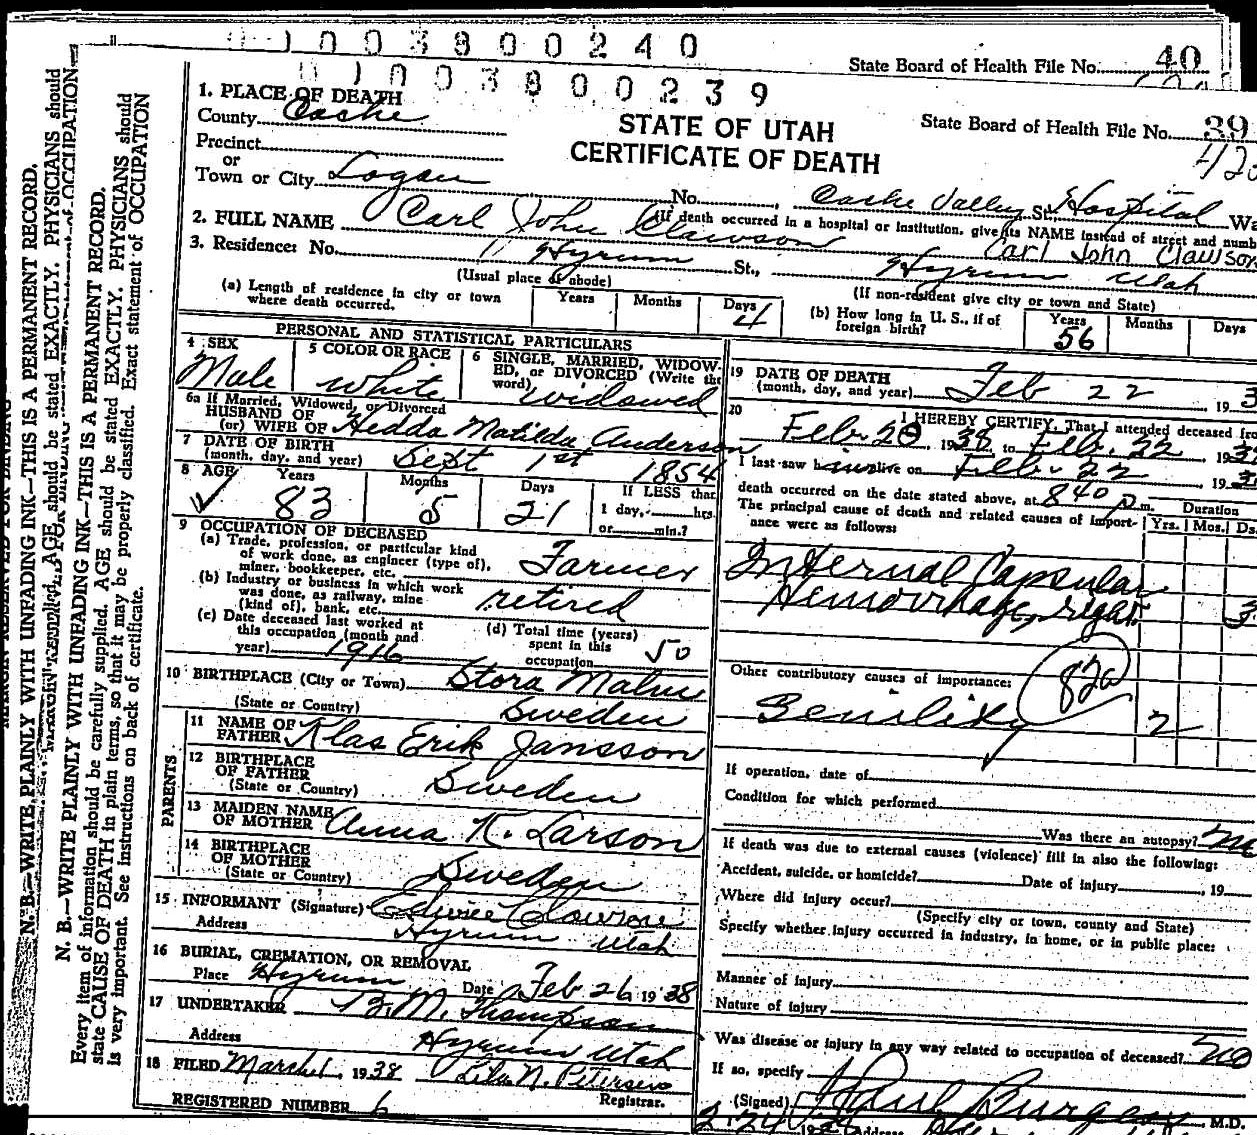 0 1 0 0 3 8 0 0 2 4 0
State Board of Health File No. 40
0 1 0 0 3 8 0 0 2 3 9
State Board of Health File No. 39
STATE OF UTAH
CERTIFICATE OF DEATH
1. PLACE OF DEATH
County Cache
Precinct
or
Town or City Logan
No. , Cache Valley St. Hospital
(If death occurred in a hospital or institution, give its NAME instead of street and numb
2. FULL NAME Carl John Clawson
Carl John Clawson
3. Residence: No. Hyrum St., Hyrum Utah
(Usual place of abode)
(If non-resident give city or town and State)
(a) Length of residence in city or town where death occurred. Years Months Days 4
(b) How long in U. S., if of foreign birth? Years 56 Months Days
PERSONAL AND STATISTICAL PARTICULARS
4 SEX Male
5 COLOR OR RACE white
6 SINGLE, MARRIED, WIDOWED, or DIVORCED (Write the word) widowed
6a If Married, Widowed, or Divorced
HUSBAND OF
(or) WIFE OF Hedda Matilda Anderson
7 DATE OF BIRTH
(month, day, and year) Sept 1st 1854
8 AGE Years 83 Months 5 Days 21 If LESS than
1 day, hrs.
or min.?
9 OCCUPATION OF DECEASED
(a) Trade, profession, or particular kind
of work done, as engineer (type of),
miner, bookkeeper, etc. Farmer
(b) Industry or business in which work
was done, as railway, mine
(kind of), bank, etc. retired
(c) Date deceased last worked at
this occupation (month and
year) 1916
(d) Total time (years)
spent in this
occupation 50
10 BIRTHPLACE (City or Town) Stora Malm
(State or Country) Sweden
PARENTS
11 NAME OF
FATHER Klas Erik Jansson
12 BIRTHPLACE
OF FATHER
(State or Country) Sweden
13 MAIDEN NAME
OF MOTHER Anna K. Larson
14 BIRTHPLACE
OF MOTHER
(State or Country) Sweden
15 INFORMANT (Signature) Clawson
Address Hyrum Utah
16 BURIAL, CREMATION, OR REMOVAL
Place Hyrum Date Feb 26 1938
17 UNDERTAKER B. M. Thompson
Address Hyrum Utah
18 FILED March 1, 1938 Lila N. Petersen
Registrar.
REGISTERED NUMBER 6
19 DATE OF DEATH
(month, day, and year) Feb 22 , 193
20 I HEREBY CERTIFY, That I attended deceased fro
Feb. 20 , 1938, to Feb. 22 , 193
I last saw him alive on Feb. 22 , 193
death occurred on the date stated above, at 8 40 p. m.
The principal cause of death and related causes of importance were as follows:
Duration
Yrs. Mos. Ds.
Internal Capsular
Hemorrhage, right 3
Other contributory causes of importance: 82a
Senility 2
If operation, date of
Condition for which performed
Was there an autopsy? no
If death was due to external causes (violence) fill in also the following:
Accident, suicide, or homicide? Date of injury , 19
Where did injury occur?
(Specify city or town, county and State)
Specify whether injury occurred in industry, in home, or in public place:
Manner of injury
Nature of injury
Was disease or injury in any way related to occupation of deceased? no
If so, specify
(Signed) Paul Burgess , M.D.
2-24 Address
N. B.—WRITE PLAINLY WITH UNFADING INK—THIS IS A PERMANENT RECORD.
N. B.—WRITE PLAINLY WITH UNFADING INK—THIS IS A PERMANENT RECORD.
Every item of information should be carefully supplied. AGE should be stated EXACTLY. PHYSICIANS should
state CAUSE OF DEATH in plain terms, so that it may be properly classified. Exact statement of OCCUPATION
is very important. See Instructions on back of certificate.